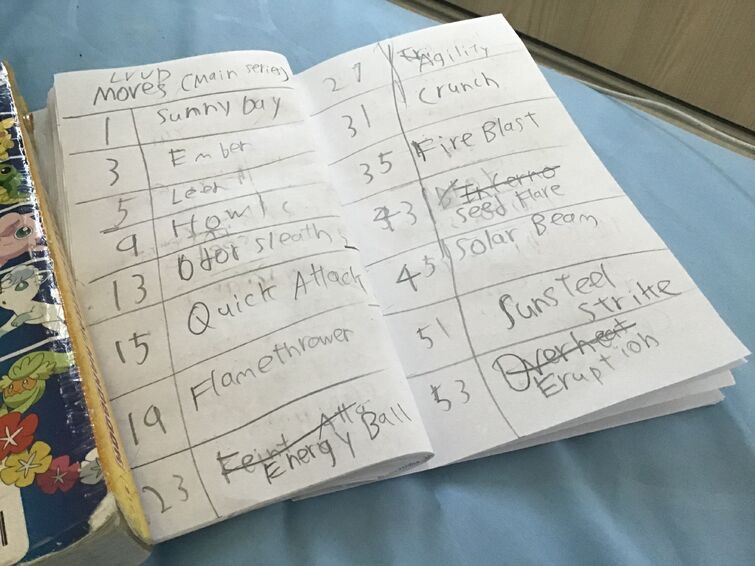 LVUP
Moves (Main series)
1 Sunny Day
3 Ember
5 Leer
9 Howl
13 Odor sleath
15 Quick Attack
19 Flamethrower
23 Feint Atta
Energy Ball
27 Agility
31 Crunch
35 Fire Blast
43 Inferno
Seed Flare
45 Solar Beam
51 Sunsteel
Strike
53 Overheat
Eruption